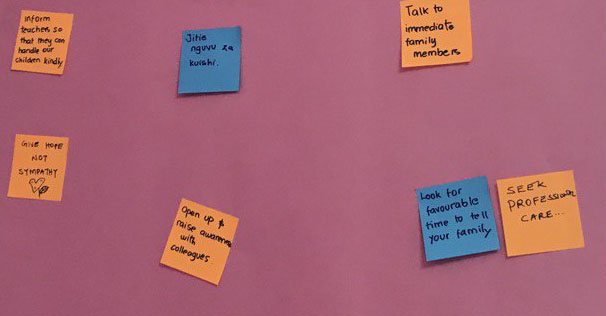 Inform
teachers so
that they can
handle our
children kindly
Jitie
nguvu za
kuishi.
Talk to
immediate
family
members
GIVE HOPE
NOT
SYMPATHY
Open up &
raise awareness
with
colleagues
Look for
favourable
time to tell
your family
SEEK
PROFESSIONAL
CARE...